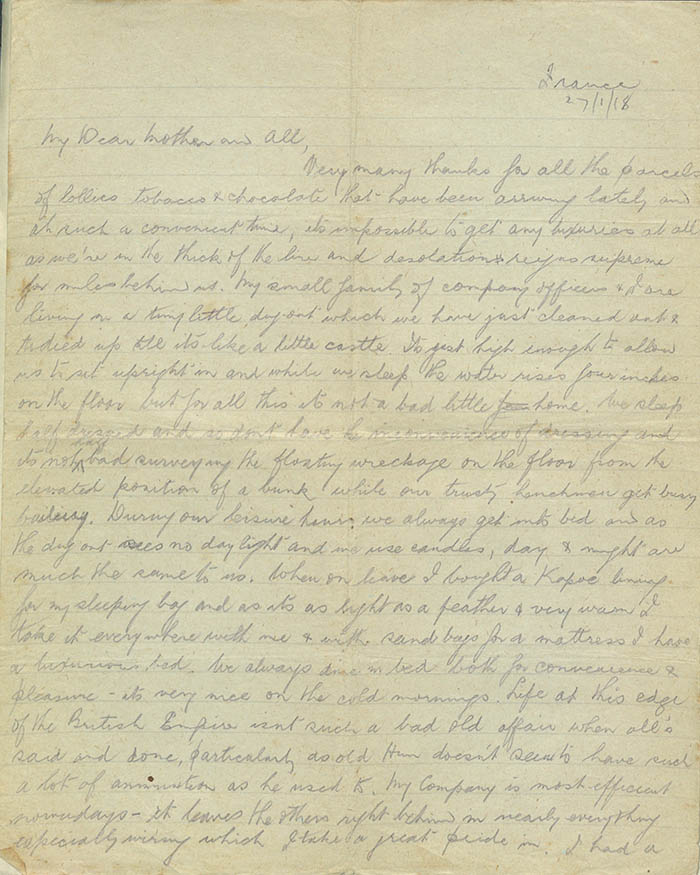 France
27/1/18
My Dear Mother and All,
Very many thanks for all the parcels
of lollies tobacco & chocolate that have been arriving lately and
at such a convenient time, its impossible to get any luxuries at all
as we're in the thick of the line and desolation reigns supreme
for miles behind us. My small family of company officers & I are
living in a tiny little dug-out which we have just cleaned out &
tidied up till its like a little castle. Its just high enough to allow
us to sit upright in and while we sleep the water rises four inches
on the floor but for all this its not a bad little home. We sleep
half dressed and so don't have the inconvenience of dressing and
its not half bad surveying the floating wreckage on the floor from the
elevated position of a bunk while our trusty henchmen get busy
bailing. During our leisure hours we always get into bed and as
the dug out sees no daylight and we use candles, day & night are
much the same to us. When on leave I bought a Kapoc lining
for my sleeping bag and as its as light as a feather & very warm I
take it everywhere with me & with sand bags for a mattress I have
a luxurious bed. We always dine in bed both for convenience &
pleasure - its very nice on the cold mornings. Life at this edge
of the British Empire isnt such a bad old affair when all's
said and done, particularly as old Hun doesn't seem to have such
a lot of ammunition as he used to. My Company is most efficient
nowadays - it leaves the others right behind in nearly everything
especially wiring which I take a great pride in. I had a